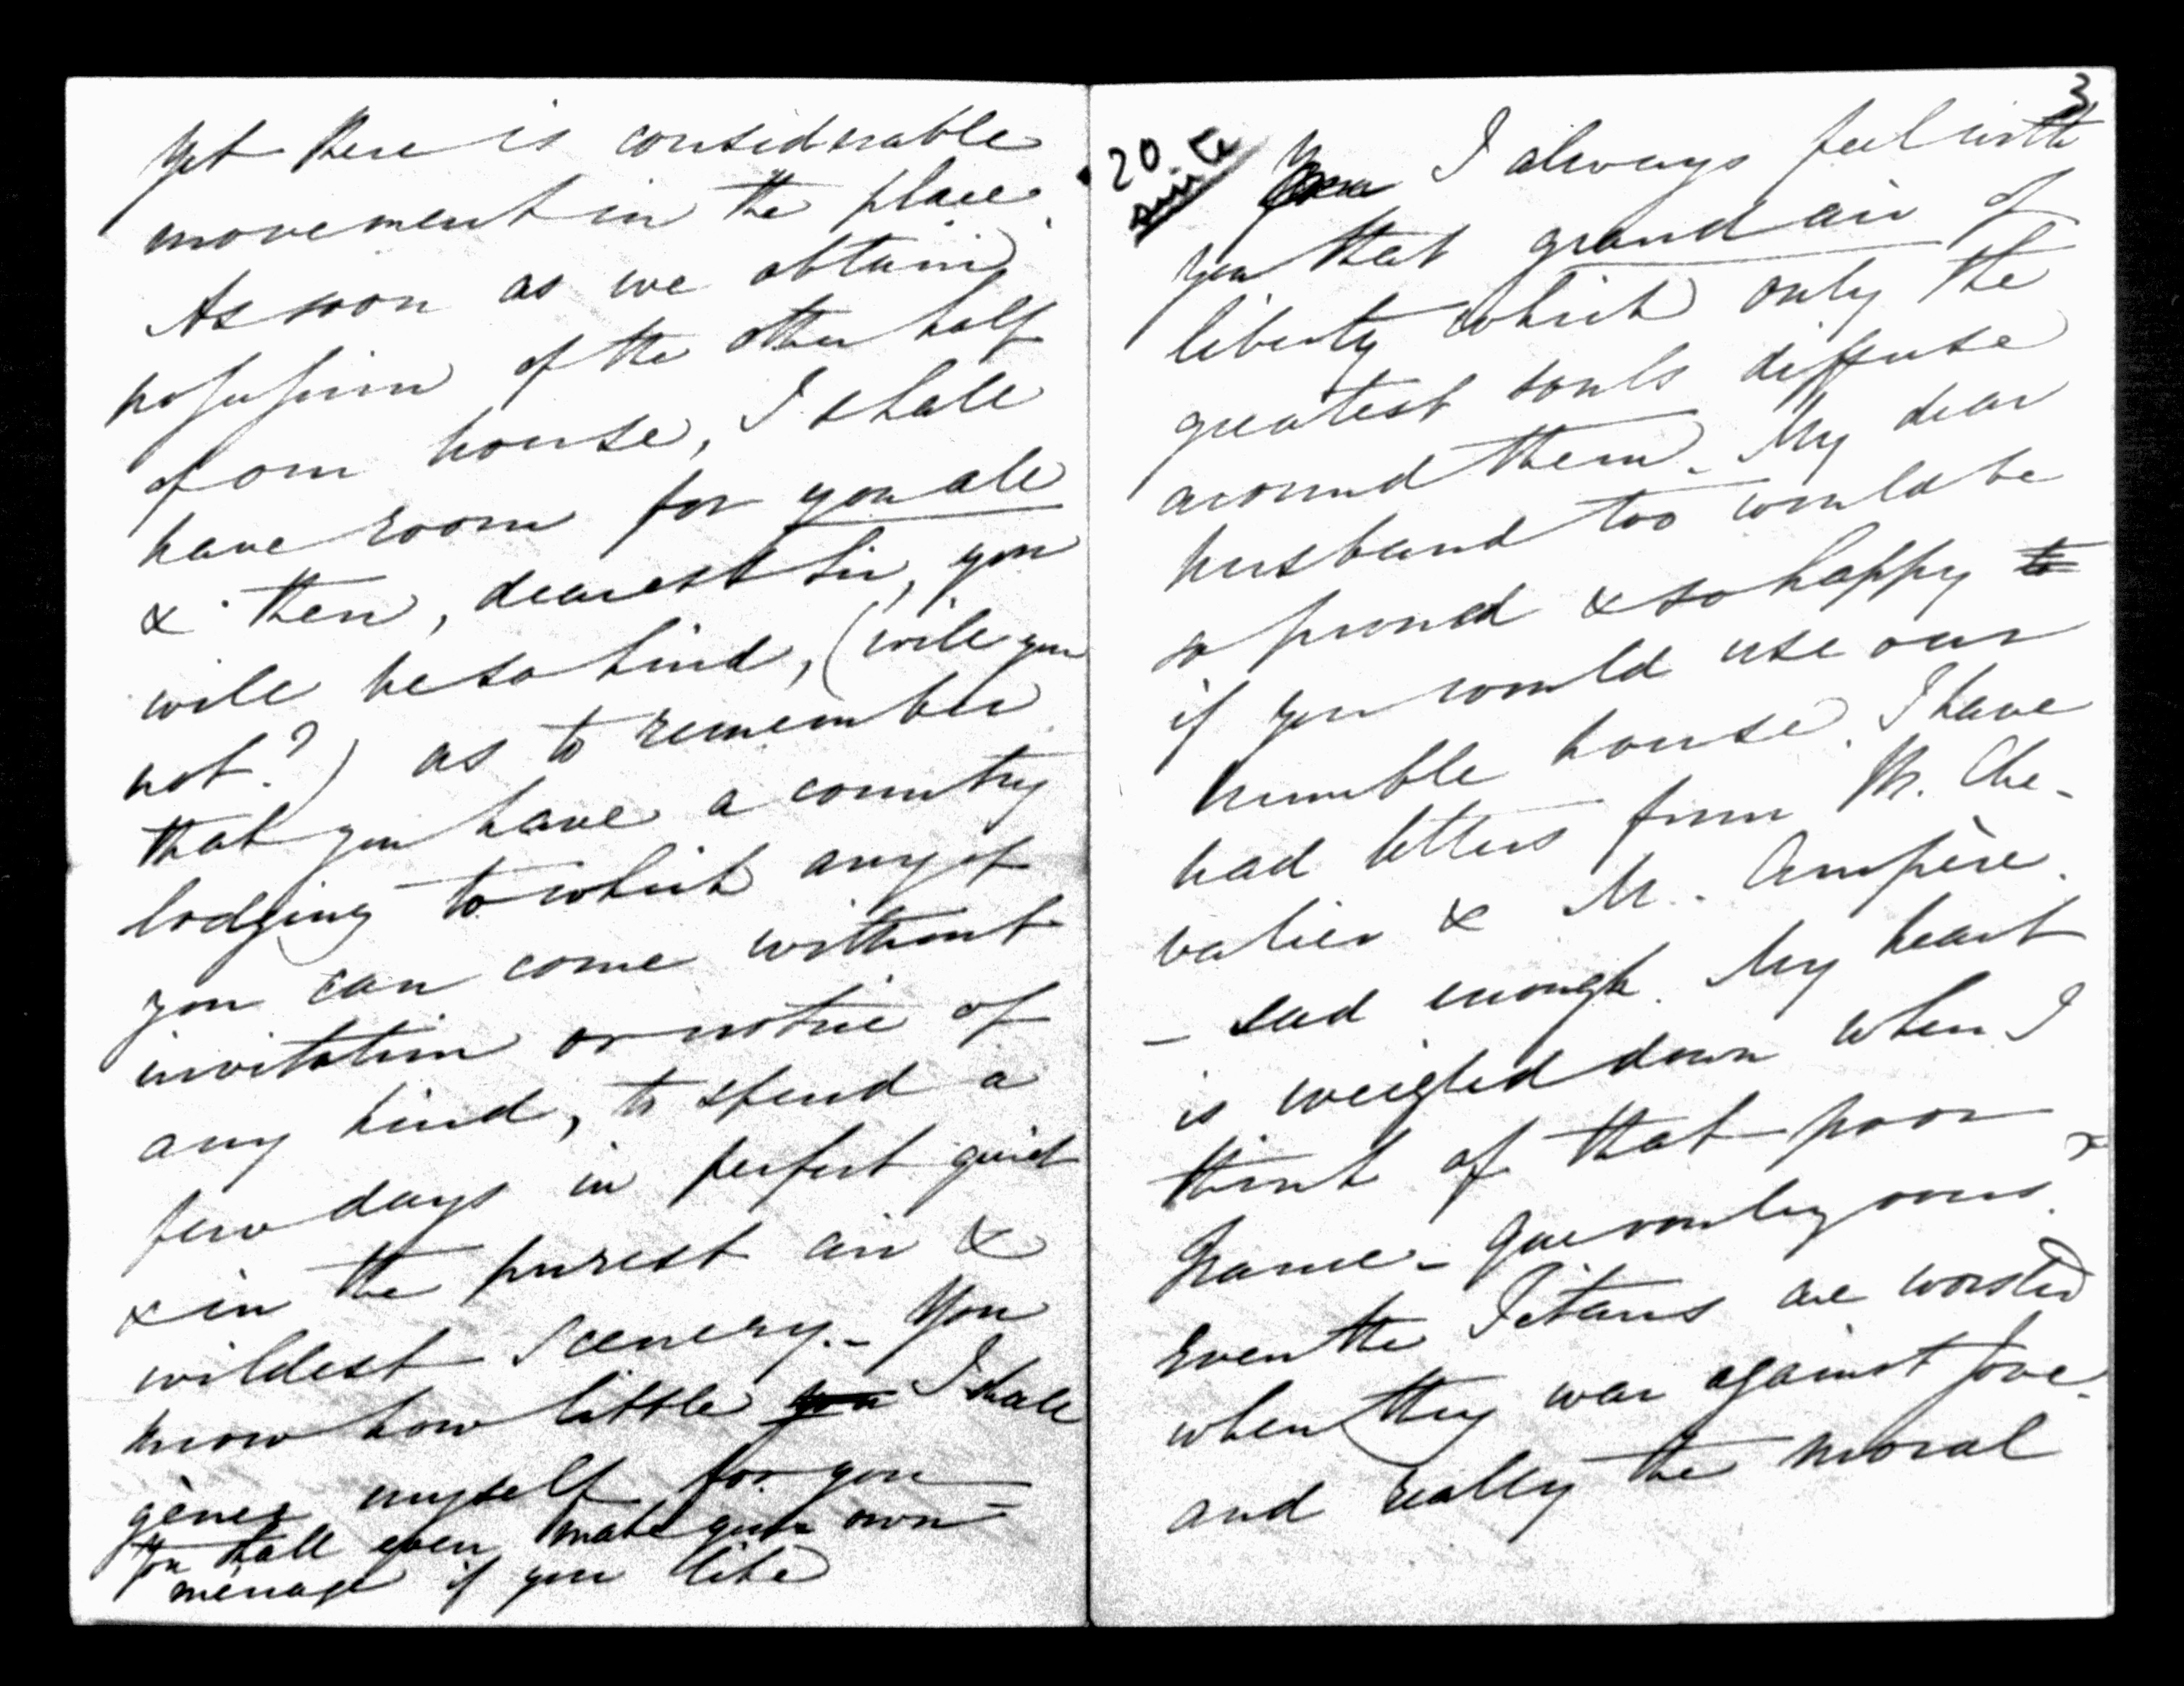 yet there is considerable
movement in the place.
As soon as we obtain
possession of the other half
of our house, I shall
have room for you all
& then, dearest Sir, you
will be so kind, (will you
not?) as to remember
that you have a country
lodging to which any of
you can come without
invitation or notice of
any kind, to spend a
few days in perfect quiet
& in the purest air &
wildest scenery. - You
know how little you I shall
gêner myself for you -
You shall even make your own
ménage if you like
3
20
suite
I always feel with
you that grand air of
liberty which only the
greatest souls diffuse
around them - My dear
husband too would be
so proud & so happy to
if you would use our
humble house. I have
had letters from M. Che-
valier & M. Ampère.
- sad enough. My heart
is weighed down when I
think of that poor
France -
Even the Titans are worsted
when they war against Jove -
and really the moral